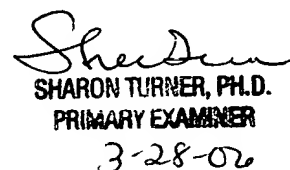 SHARON TURNER, PH.D.
PRIMARY EXAMINER
3-28-06